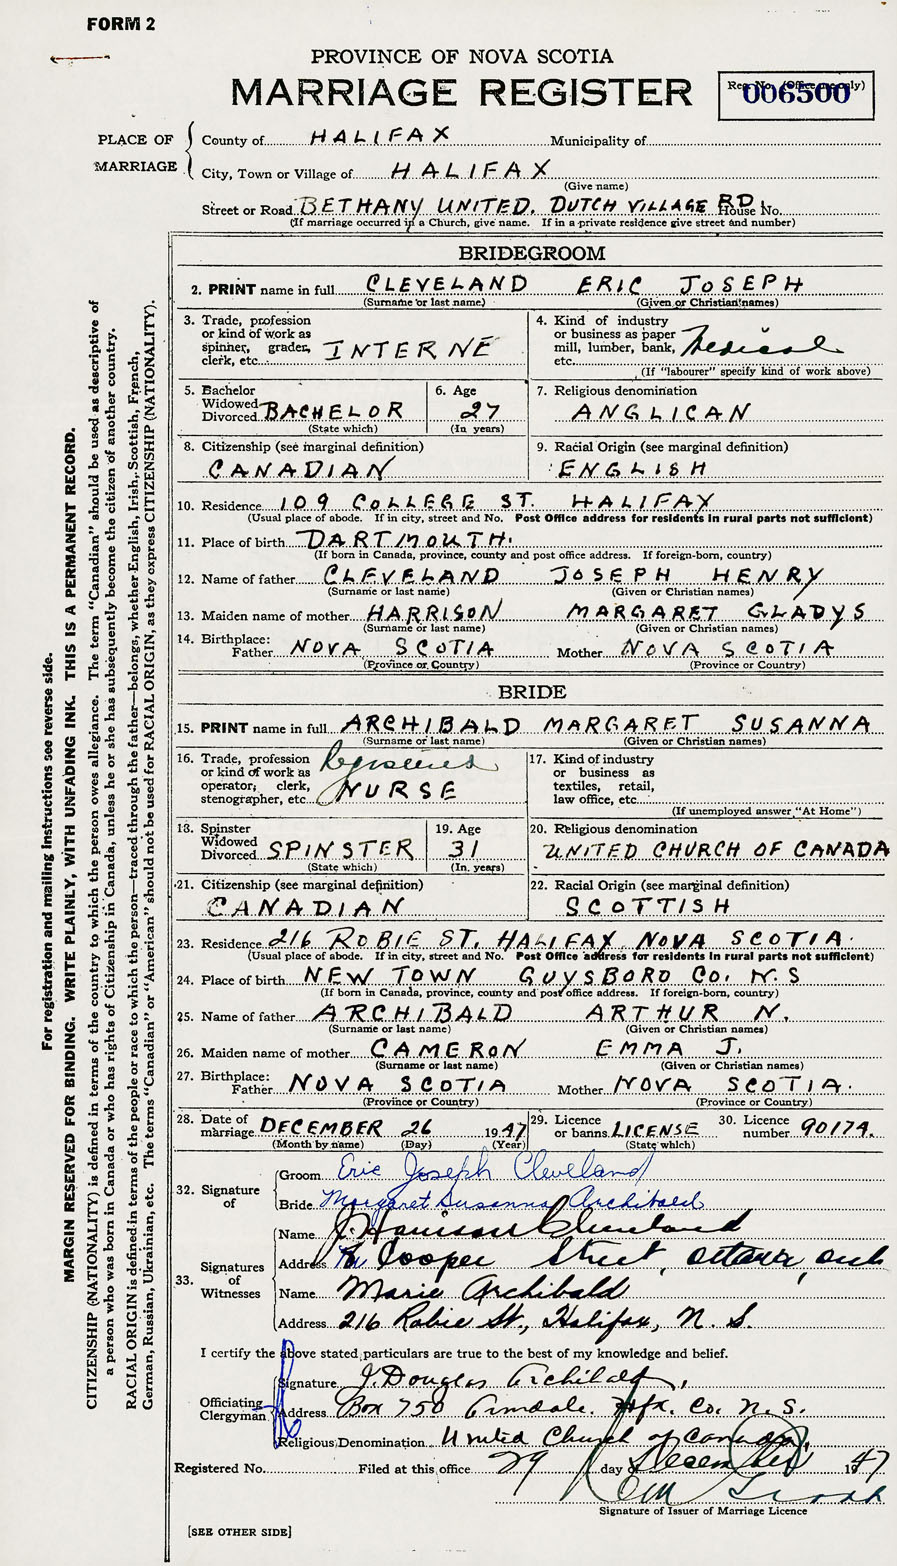 FORM 2
PROVINCE OF NOVA SCOTIA
MARRIAGE REGISTER
Reg. No. (Office use only)
006500
PLACE OF MARRIAGE
County of HALIFAX Municipality of
City, Town or Village of HALIFAX
(Give name)
Street or Road BETHANY UNITED, DUTCH VILLAGE RD House No.
(If marriage occurred in a Church, give name. If in a private residence give street and number)
BRIDEGROOM
2. PRINT name in full CLEVELAND ERIC JOSEPH
(Surname or last name) (Given or Christian names)
3. Trade, profession or kind of work as spinner, grader, clerk, etc. INTERNE
4. Kind of industry or business as paper mill, lumber, bank, etc. Medical
(If "labourer" specify kind of work above)
5. Bachelor Widowed Divorced BACHELOR
(State which)
6. Age 27
(In years)
7. Religious denomination
ANGLICAN
8. Citizenship (see marginal definition)
CANADIAN
9. Racial Origin (see marginal definition)
ENGLISH
10. Residence 109 COLLEGE ST. HALIFAX
(Usual place of abode. If in city, street and No. Post Office address for residents in rural parts not sufficient)
11. Place of birth DARTMOUTH.
(If born in Canada, province, county and post office address. If foreign-born, country)
12. Name of father CLEVELAND JOSEPH HENRY
(Surname or last name) (Given or Christian names)
13. Maiden name of mother HARRISON MARGARET GLADYS
(Surname or last name) (Given or Christian names)
14. Birthplace:
Father NOVA SCOTIA Mother NOVA SCOTIA
(Province or Country) (Province or Country)
BRIDE
15. PRINT name in full ARCHIBALD MARGARET SUSANNA
(Surname or last name) (Given or Christian names)
16. Trade, profession or kind of work as operator, clerk, stenographer, etc. Registered NURSE
17. Kind of industry or business as textiles, retail, law office, etc.
(If unemployed answer "At Home")
18. Spinster Widowed Divorced SPINSTER
(State which)
19. Age 31
(In years)
20. Religious denomination
UNITED CHURCH OF CANADA
21. Citizenship (see marginal definition)
CANADIAN
22. Racial Origin (see marginal definition)
SCOTTISH
23. Residence 216 ROBIE ST. HALIFAX NOVA SCOTIA.
(Usual place of abode. If in city, street and No. Post Office address for residents in rural parts not sufficient)
24. Place of birth NEW TOWN GUYSBORO CO. N.S
(If born in Canada, province, county and post office address. If foreign-born, country)
25. Name of father ARCHIBALD ARTHUR N.
(Surname or last name) (Given or Christian names)
26. Maiden name of mother CAMERON EMMA J.
(Surname or last name) (Given or Christian names)
27. Birthplace:
Father NOVA SCOTIA Mother NOVA SCOTIA.
(Province or Country) (Province or Country)
28. Date of marriage DECEMBER 26 1947
(Month by name) (Day) (Year)
29. Licence or banns LICENSE
(State which)
30. Licence number 90174.
32. Signature of
Groom Eric Joseph Cleveland
Bride Margaret Susanna Archibald
33. Signatures of Witnesses
Name J. Harrison Cleveland
Address Cooper Street, Ottawa, Ont
Name Marie Archibald
Address 216 Robie St., Halifax, N. S.
I certify the above stated particulars are true to the best of my knowledge and belief.
Officiating Clergyman
Signature J. Douglas Archibald,
Address Box 750 Armdale. Hfx. Co. N.S.
Religious Denomination United Church of Canada,
Registered No. Filed at this office 29 day of December 1947
Signature of Issuer of Marriage Licence
[SEE OTHER SIDE]
For registration and mailing instructions see reverse side.
MARGIN RESERVED FOR BINDING. WRITE PLAINLY, WITH UNFADING INK. THIS IS A PERMANENT RECORD.
CITIZENSHIP (NATIONALITY) is defined in terms of the country to which the person owes allegiance. The term "Canadian" should be used as descriptive of
a person who was born in Canada or who has rights of Citizenship in Canada, unless he or she has subsequently become the citizen of another country.
RACIAL ORIGIN is defined in terms of the people or race to which the person—traced through the father—belongs, whether English, Irish, Scottish, French,
German, Russian, Ukrainian, etc. The terms "Canadian" or "American" should not be used for RACIAL ORIGIN, as they express CITIZENSHIP (NATIONALITY).